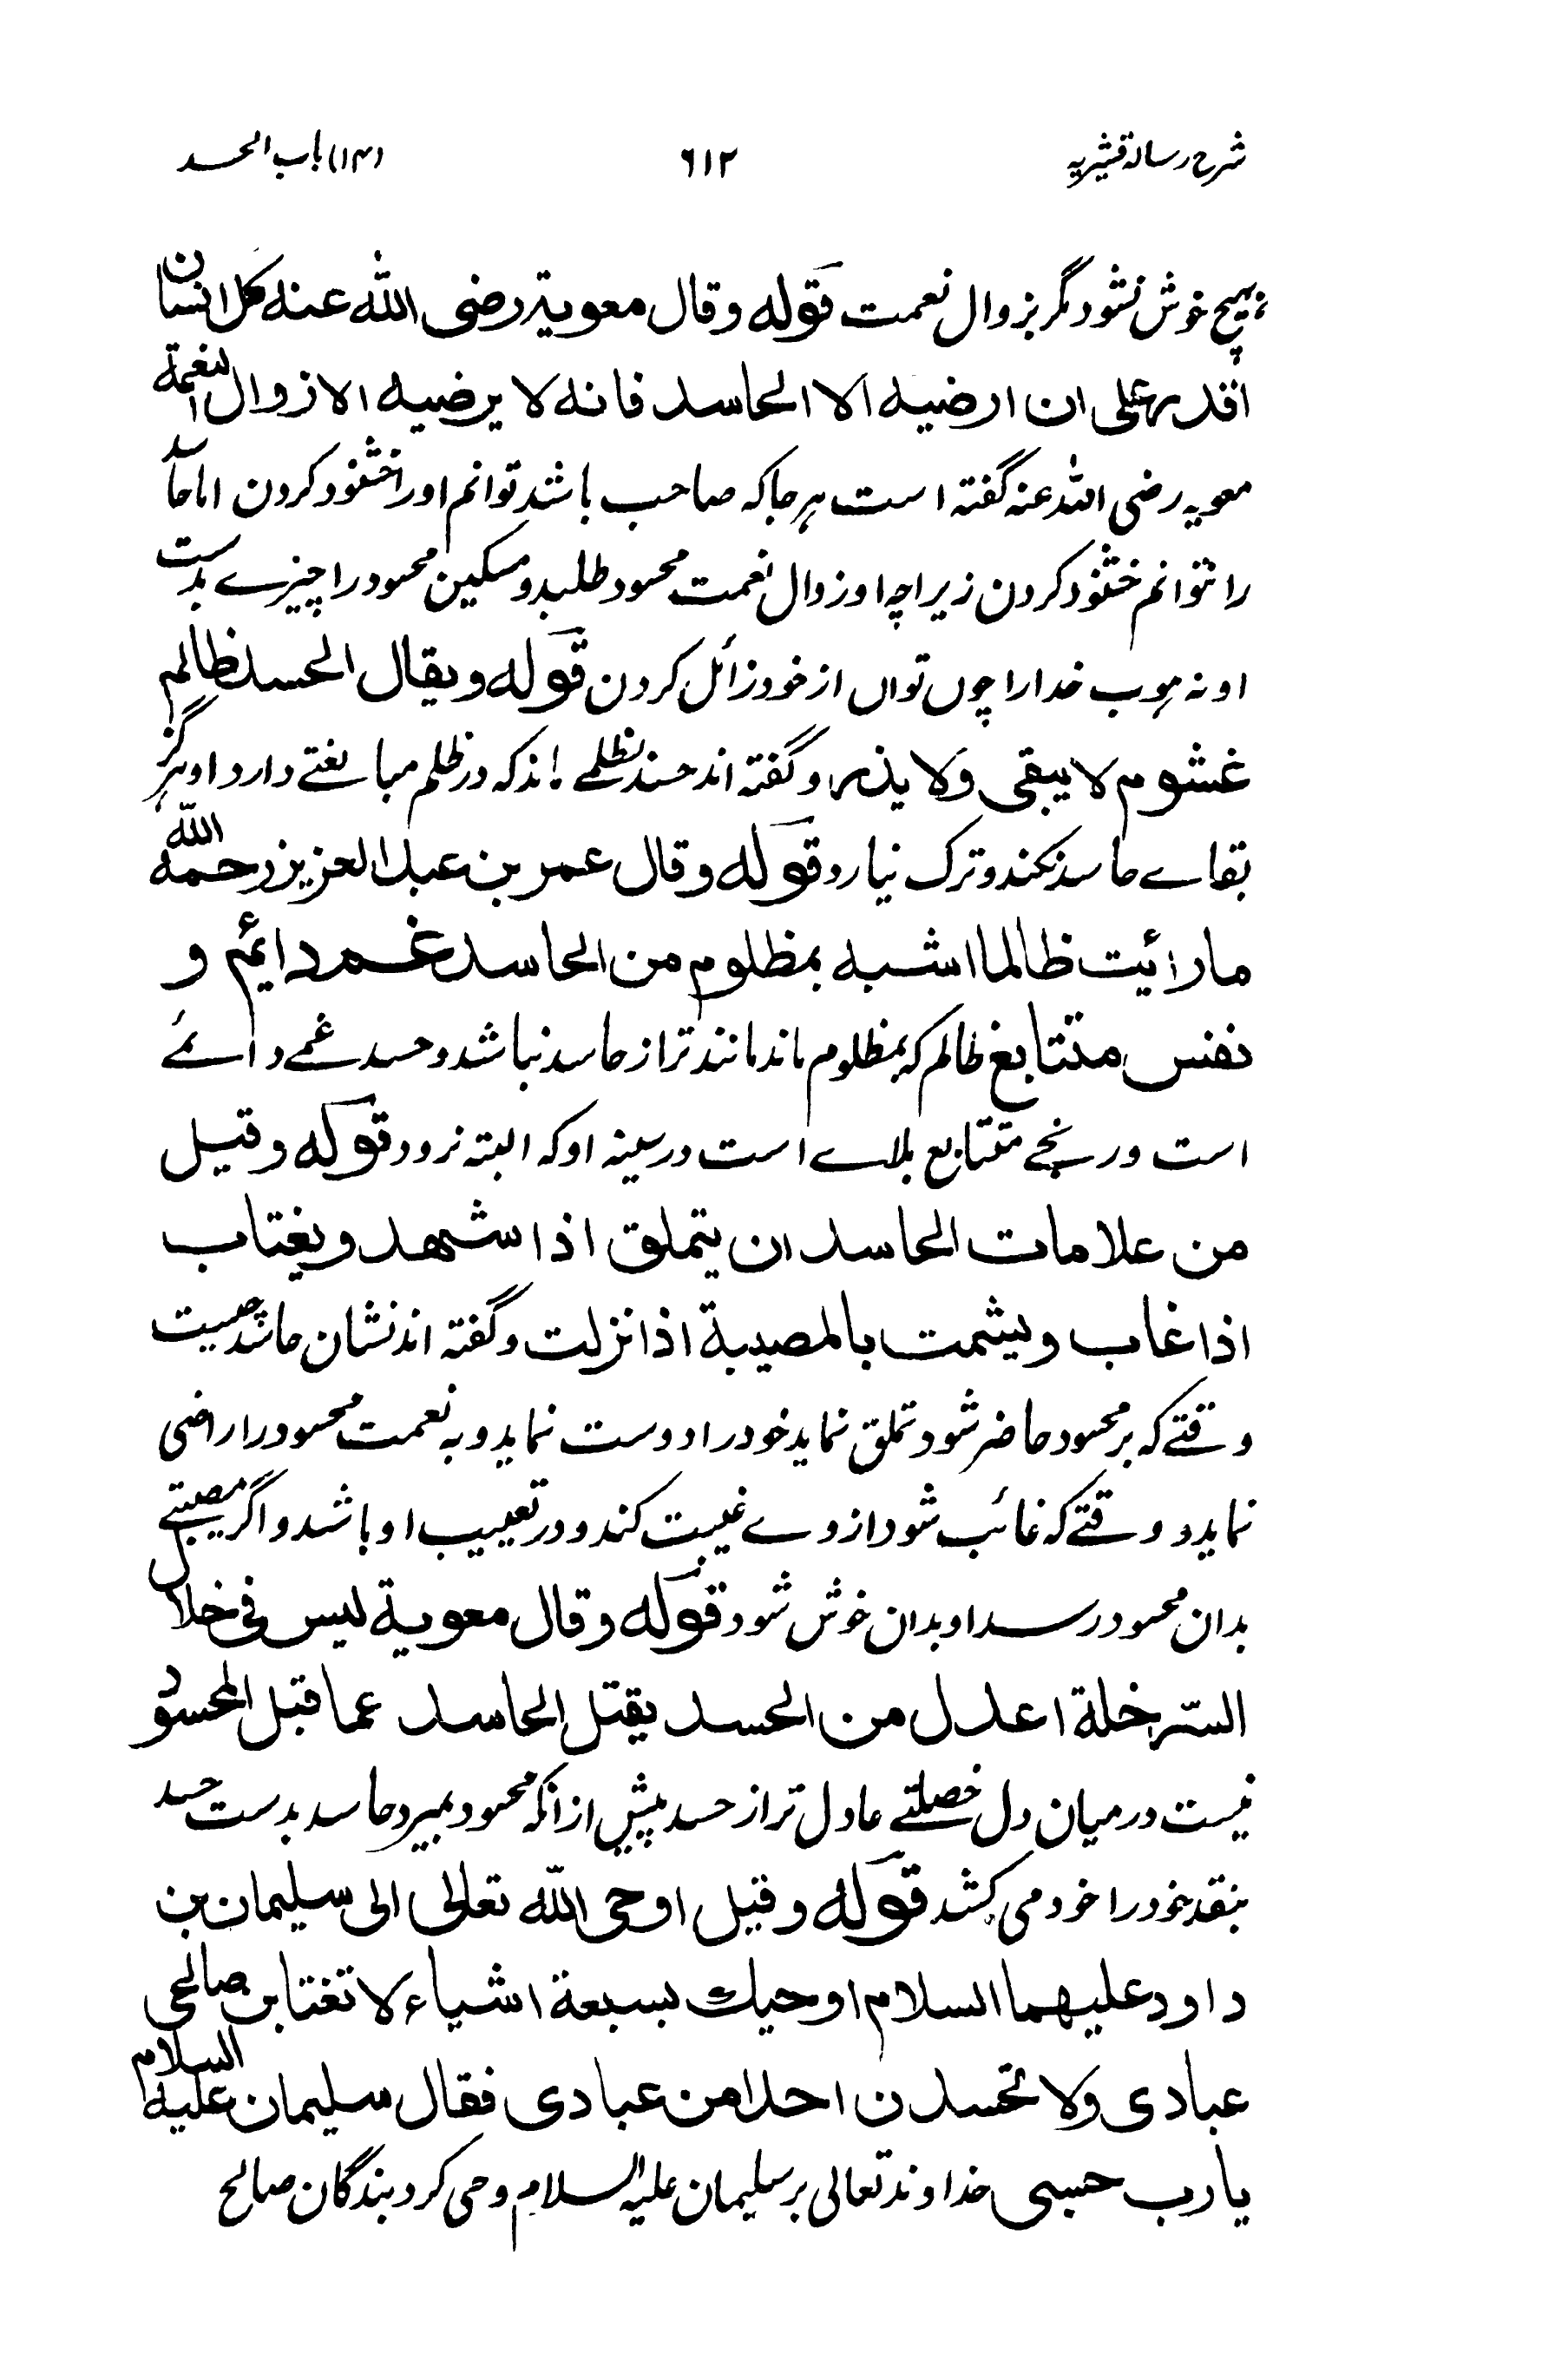 شرح رسالہ قشیریہ ٦١٢ (١٤) باب الحسد
بہیچ خوش نشود مگر بزوال نعمت قوله وقال معوية رضى الله عنه كل انسان
اقدر على ان ارضيه الا الحاسد فانه لا يرضيه الا زوال النعمة
معویہ رضی اللہ عنہ گفتہ است ہرجا کہ صاحب باشد توانم او را خشنود کردن اما حاسد
را نتوانم خشنود کردن زیرا چہ او زوال نعمت محسود طلبد و مسکین محسود را چیزے بدست
او نہ موہب خدا را چوں تواں از خود زائل کردن قوله ويقال الحسد ظالم
غشوم لا يبقى ولا يذر و گفتہ اند حسد ظلمے اند کہ در ظلم مبالغتے دارد او ہرگز
بقاے حاسد نکند و ترک نیارد قوله وقال عمر بن عبد العزيز رحمه الله
ما رائيت ظالما اشبه بمظلوم من الحاسد غم دايم و
نفس متتابع ظالم کہ بمظلوم ماند مانند تر از حاسد نباشد و حسد غمے دائمے
است و رنجے متتابع بلاے است در سینہ او کہ البتہ نرود قوله وقيل
من علامات الحاسد ان يتملق اذا شهد ويغتاب
اذا غاب ويشمت بالمصيبة اذا نزلت و گفتہ اند نشان حاسد چیست
وقتے کہ بر محسود حاضر شود تملق نماید خود را دوست نماید و بہ نعمت محسود را راضی
نماید و وقتے کہ غائب شود از وے غیبت کند و در تعییب او باشد و اگر مصیبتے
بدان محسود رسد او بدان خوش شود قوله وقال معوية ليس فى خلال
الشر خلة اعدل من الحسد يقتل الحاسد عما قبل المحسود
نیست درمیان دل خصلتے عادل تر از حسد پیش از انکہ محسود بمیرد حاسد بدست حسد
بنقد خود را خود می کشد قوله وقيل اوحى الله تعالى الى سليمان بن
داود عليهما السلام اوحيك بسبعة اشياء لا تغتابن صالحى
عبادى ولا تحسدن احدا من عبادى فقال سليمان عليه السلام
يا رب حسبى خداوند تعالی بر سلیمان علیہ السلام وحی کرد بندگان صالح